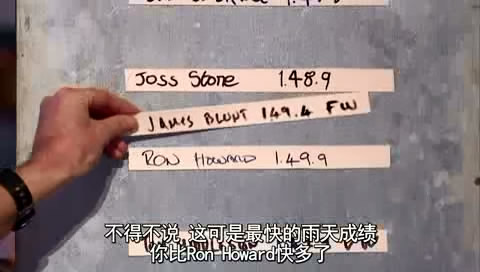 Joss Stone 1.48.9
JAMES BLUNT 1.49.4 FW
RON HOWARD 1.49.9
不得不说 这可是最快的雨天成绩
你比Ron Howard快多了